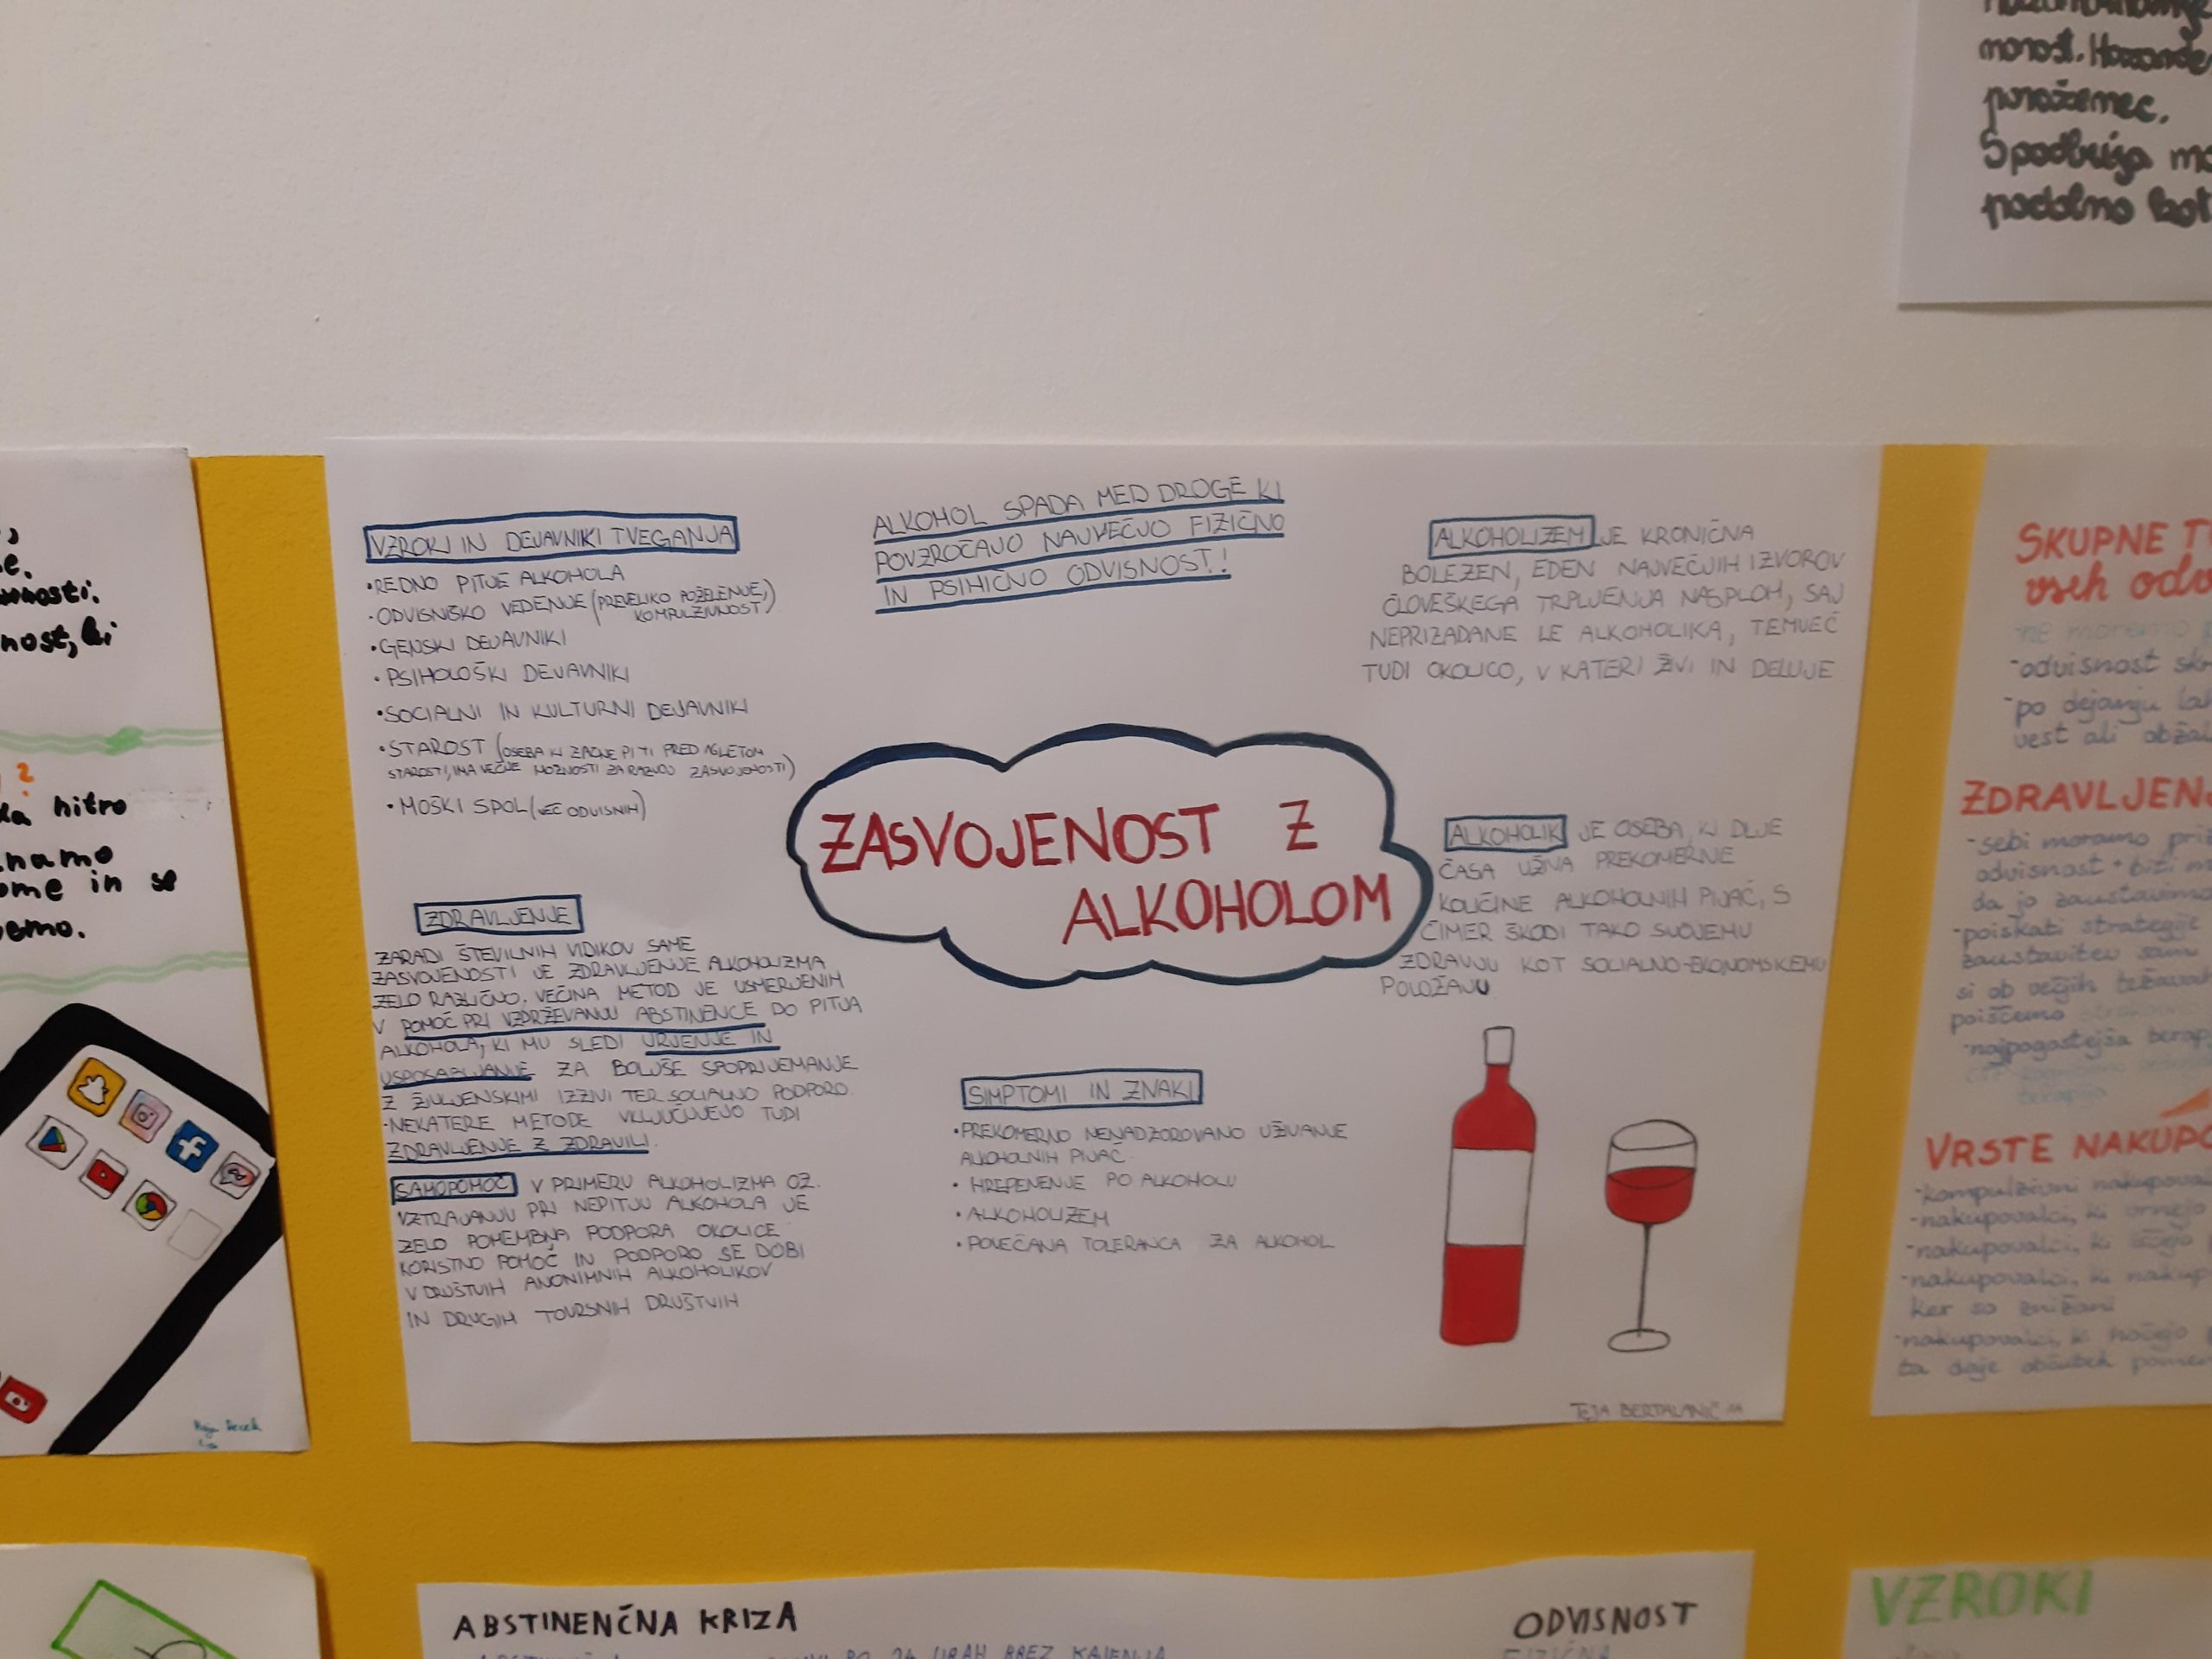 monost.
poraženec.
Spodbuja
podolno
VZROKI IN DEJAVNIKI TVEGANJA
•REDNO PITJE ALKOHOLA
•ODVISNIŠKO VEDENJE (PREVELIKO POŽELENJE,
KOMPULZIVNOST)
•GENSKI DEJAVNIKI
•PSIHOLOŠKI DEJAVNIKI
•SOCIALNI IN KULTURNI DEJAVNIKI
•STAROST (OSEBA KI ZAČNE PITI PRED 16LETOM
STAROSTI, IMA VEČJE MOŽNOSTI ZA RAZVOJ ZASVOJENOSTI)
•MOŠKI SPOL (VEČ ODVISNIH)
ALKOHOL SPADA MED DROGE KI
POVZROČAJO NAJVEČJO FIZIČNO
IN PSIHIČNO ODVISNOST!
ALKOHOLIZEM JE KRONIČNA
BOLEZEN, EDEN NAJVEČJIH IZVOROV
ČLOVEŠKEGA TRPLJENJA NASPLOH, SAJ
NEPRIZADANE LE ALKOHOLIKA, TEMVEČ
TUDI OKOLICO, V KATERI ŽIVI IN DELUJE
ZASVOJENOST Z
ALKOHOLOM
ALKOHOLIK JE OSEBA, KI DLJE
ČASA UŽIVA PREKOMERNE
KOLIČINE ALKOHOLNIH PIJAČ, S
ČIMER ŠKODI TAKO SVOJEMU
ZDRAVJU KOT SOCIALNO-EKONOMSKEMU
POLOŽAJU
ZDRAVLJENJE
ZARADI ŠTEVILNIH VIDIKOV SAME
ZASVOJENOSTI JE ZDRAVLJENJE ALKOHOLIZMA
ZELO RAZLIČNO. VEČINA METOD JE USMERJENIH
V POMOČ PRI VZDRŽEVANJU ABSTINENCE DO PITJA
ALKOHOLA, KI MU SLEDI URJENJE IN
USPOSABLJANJE ZA BOLJŠE SPOPRIJEMANJE
Z ŽIVLJENSKIMI IZZIVI TER SOCIALNO PODPORO.
•NEKATERE METODE VKLJUČUJEJO TUDI
ZDRAVLJENJE Z ZDRAVILI.
SAMOPOMOČ V PRIMERU ALKOHOLIZMA OZ.
VZTRAJANJU PRI NEPITJU ALKOHOLA JE
ZELO POMEMBNA PODPORA OKOLICE
KORISTNO POMOČ IN PODPORO SE DOBI
V DRUŠTVIH ANONIMNIH ALKOHOLIKOV
IN DRUGIH TOVRSNIH DRUŠTVIH
SIMPTOMI IN ZNAKI
•PREKOMERNO NENADZOROVANO UŽIVANJE
ALKOHOLNIH PIJAČ.
• HREPENENJE PO ALKOHOLU
•ALKOHOLIZEM
•POVEČANA TOLERANCA ZA ALKOHOL
TEJA BERTALANIČ 1A
nitro
in se
SKUPNE
vseh
•ne moremo
•odvisnost
•po dejanju
vest ali
ZDRAVLJENJ
•sebi moramo
odvisnost + biti
da jo zaustavimo
•poiskati strategije
zaustavitev sam
si ob večjih težavah
poiščemo
•najpogostejša
terapija
VRSTE NAKUPO
•kompulzivni
•nakupovalci, ki
•nakupovalci, ki
•nakupovalci, ki nakup
ker so znižani
•nakupovalci, ki hočejo
ta daje občutek
ABSTINENČNA KRIZA
PO 24 URAH BREZ KAJENJA
ODVISNOST
FIZIČNA
VZROKI